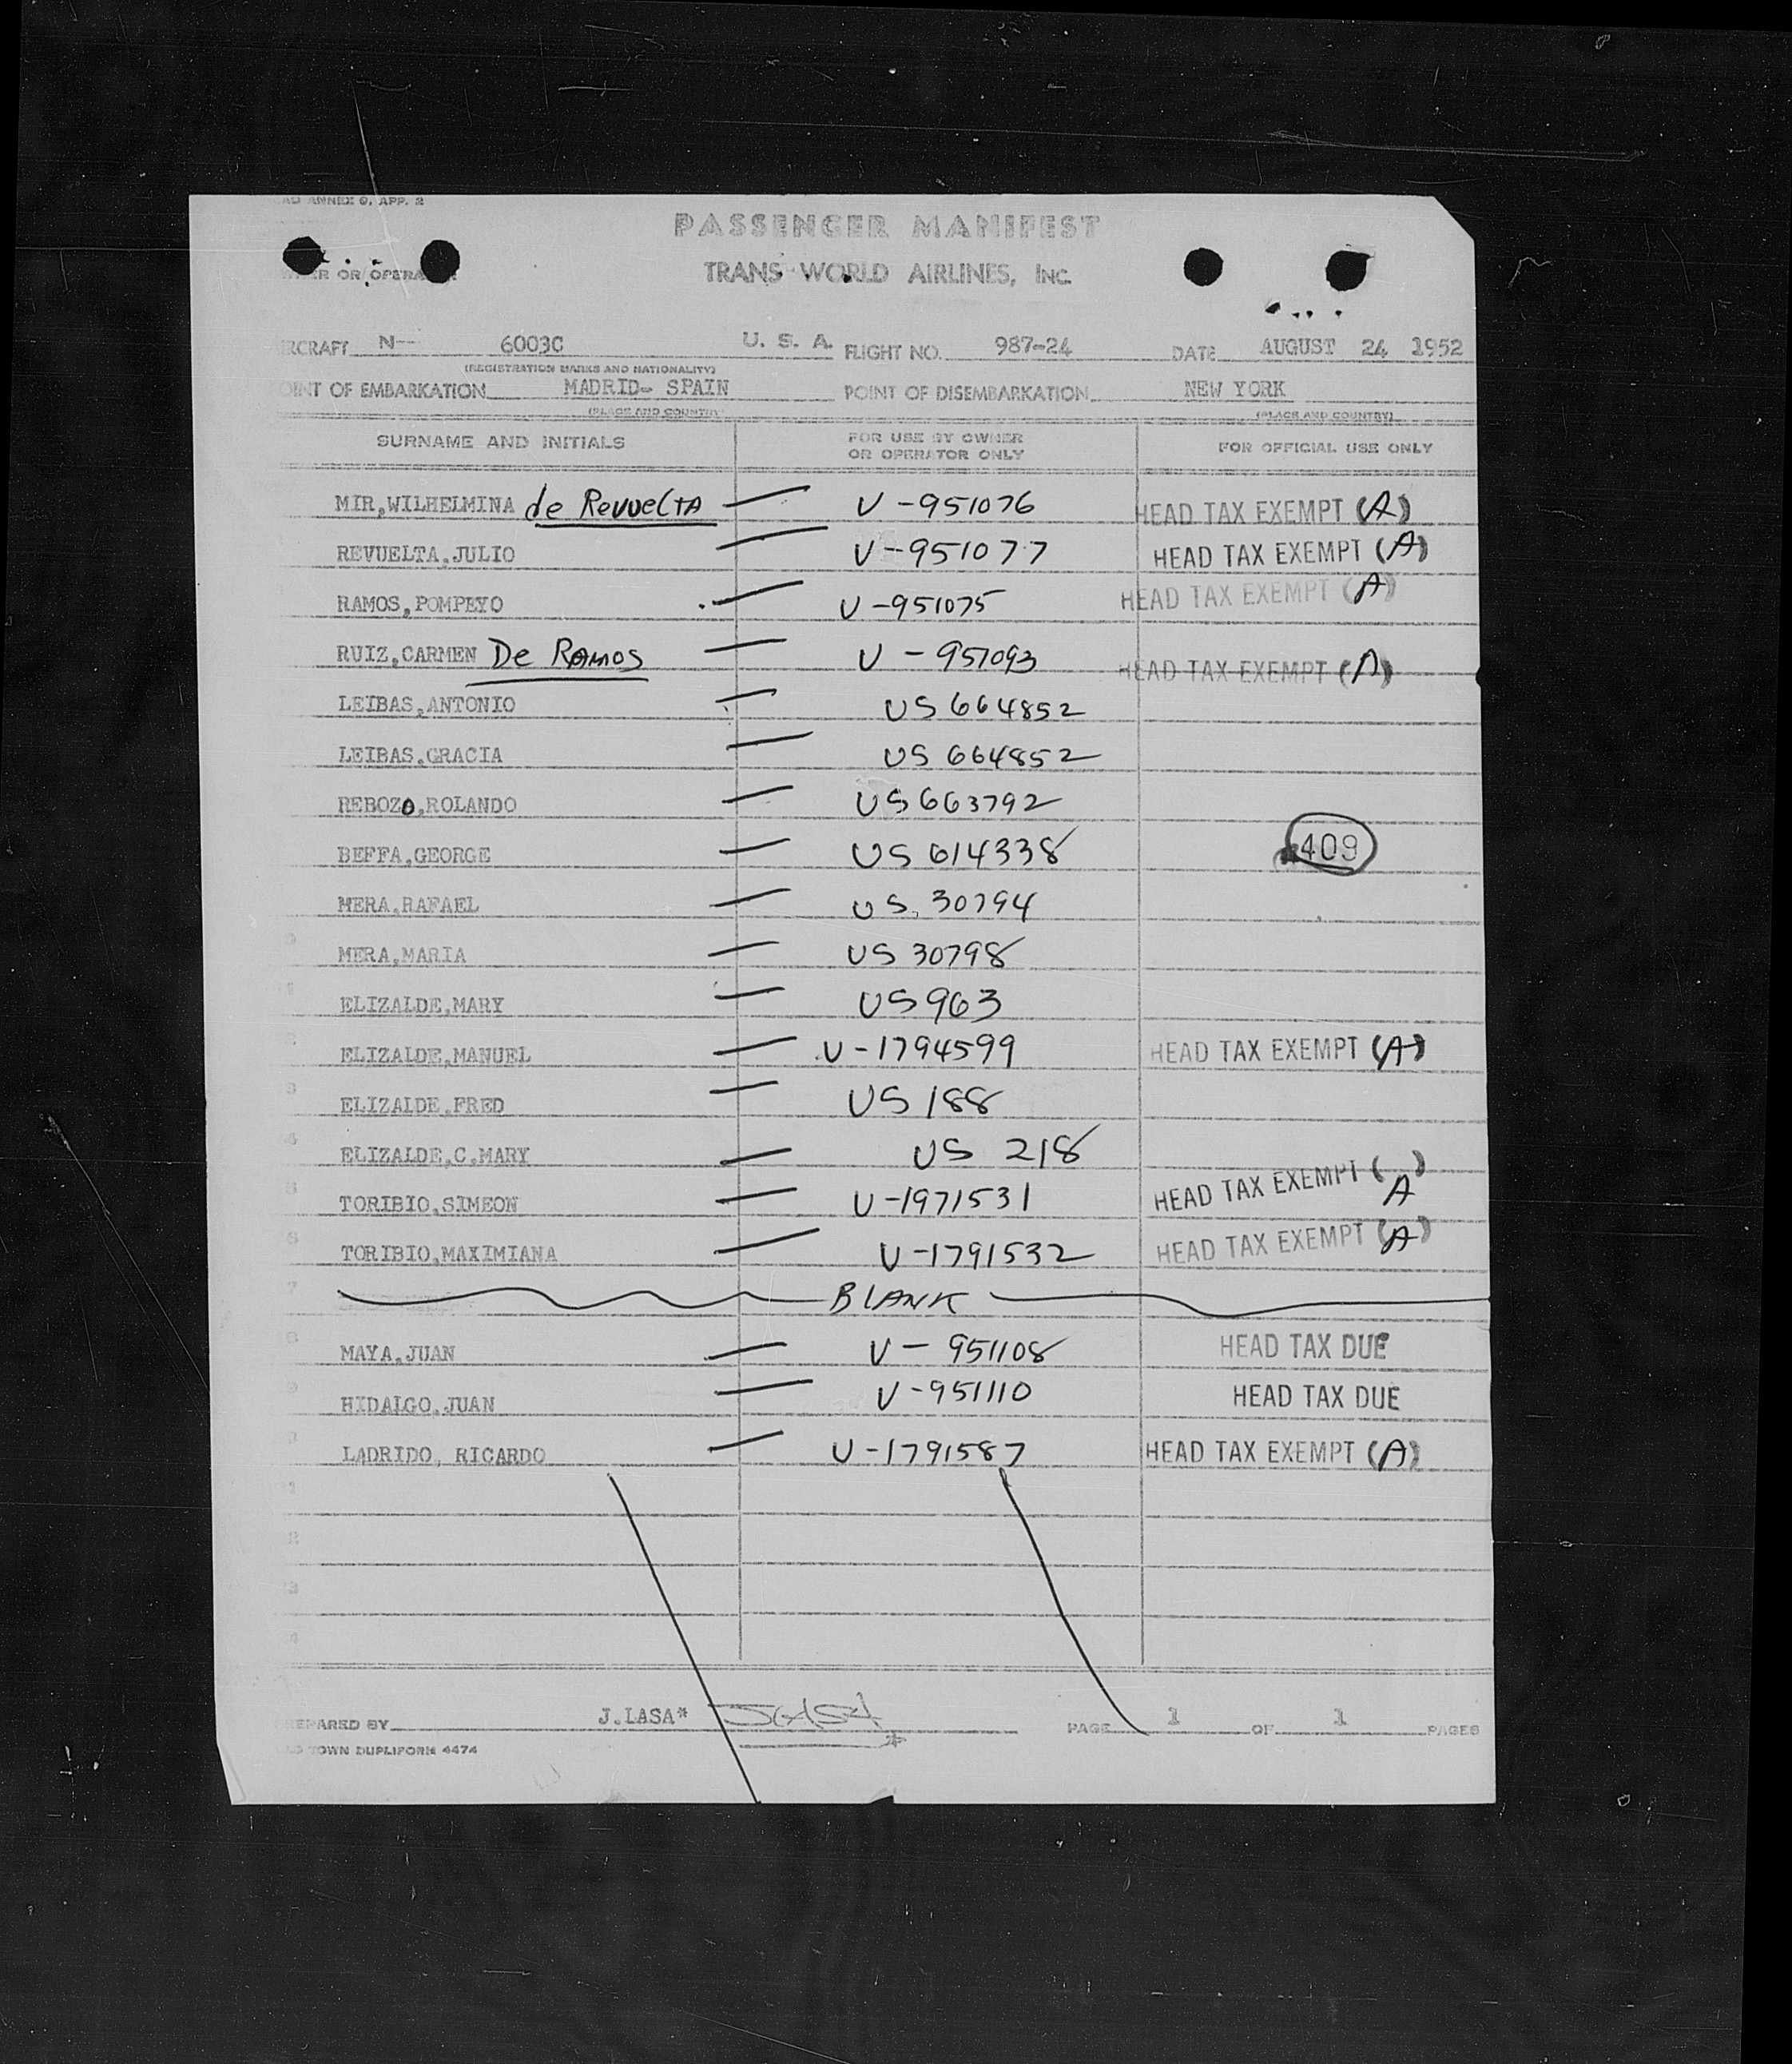 AO ANNEX 9, APP. 2
PASSENGER MANIFEST
OR OPERA
TRANS WORLD AIRLINES, INC.
RCRAFT N-- 6003C U. S. A. FLIGHT NO. 987-24 DATE AUGUST 24 1952
(REGISTRATION MARKS AND NATIONALITY)
OINT OF EMBARKATION MADRID- SPAIN POINT OF DISEMBARKATION NEW YORK
(PLACE AND COUNTRY) (PLACE AND COUNTRY)
SURNAME AND INITIALS FOR USE BY OWNER OR OPERATOR ONLY FOR OFFICIAL USE ONLY
MIR,WILHELMINA de Revuelta U-951076 HEAD TAX EXEMPT (A)
REVUELTA,JULIO U-951077 HEAD TAX EXEMPT (A)
RAMOS,POMPEYO U-951075 HEAD TAX EXEMPT (A)
RUIZ,CARMEN De RAMOS U-951093 HEAD TAX EXEMPT (A)
LEIBAS,ANTONIO US 664852
LEIBAS,GRACIA US 664852
REBOZO,ROLANDO US 663792
BEFFA,GEORGE US 614338 409
MERA,RAFAEL US 30794
MERA,MARIA US 30798
ELIZALDE,MARY US 963
ELIZALDE,MANUEL U-1794599 HEAD TAX EXEMPT (A)
ELIZALDE,FRED US 188
ELIZALDE,C.MARY US 218
TORIBIO,SIMEON U-1971531 HEAD TAX EXEMPT (A)
TORIBIO,MAXIMIANA U-1791532 HEAD TAX EXEMPT (A)
BLANK
MAYA,JUAN U-951108 HEAD TAX DUE
HIDALGO,JUAN U-951110 HEAD TAX DUE
LADRIDO, RICARDO U-1791587 HEAD TAX EXEMPT (A)
REPARED BY J.LASA* PAGE 1 OF 1 PAGES
TOWN DUPLIFORM 4474